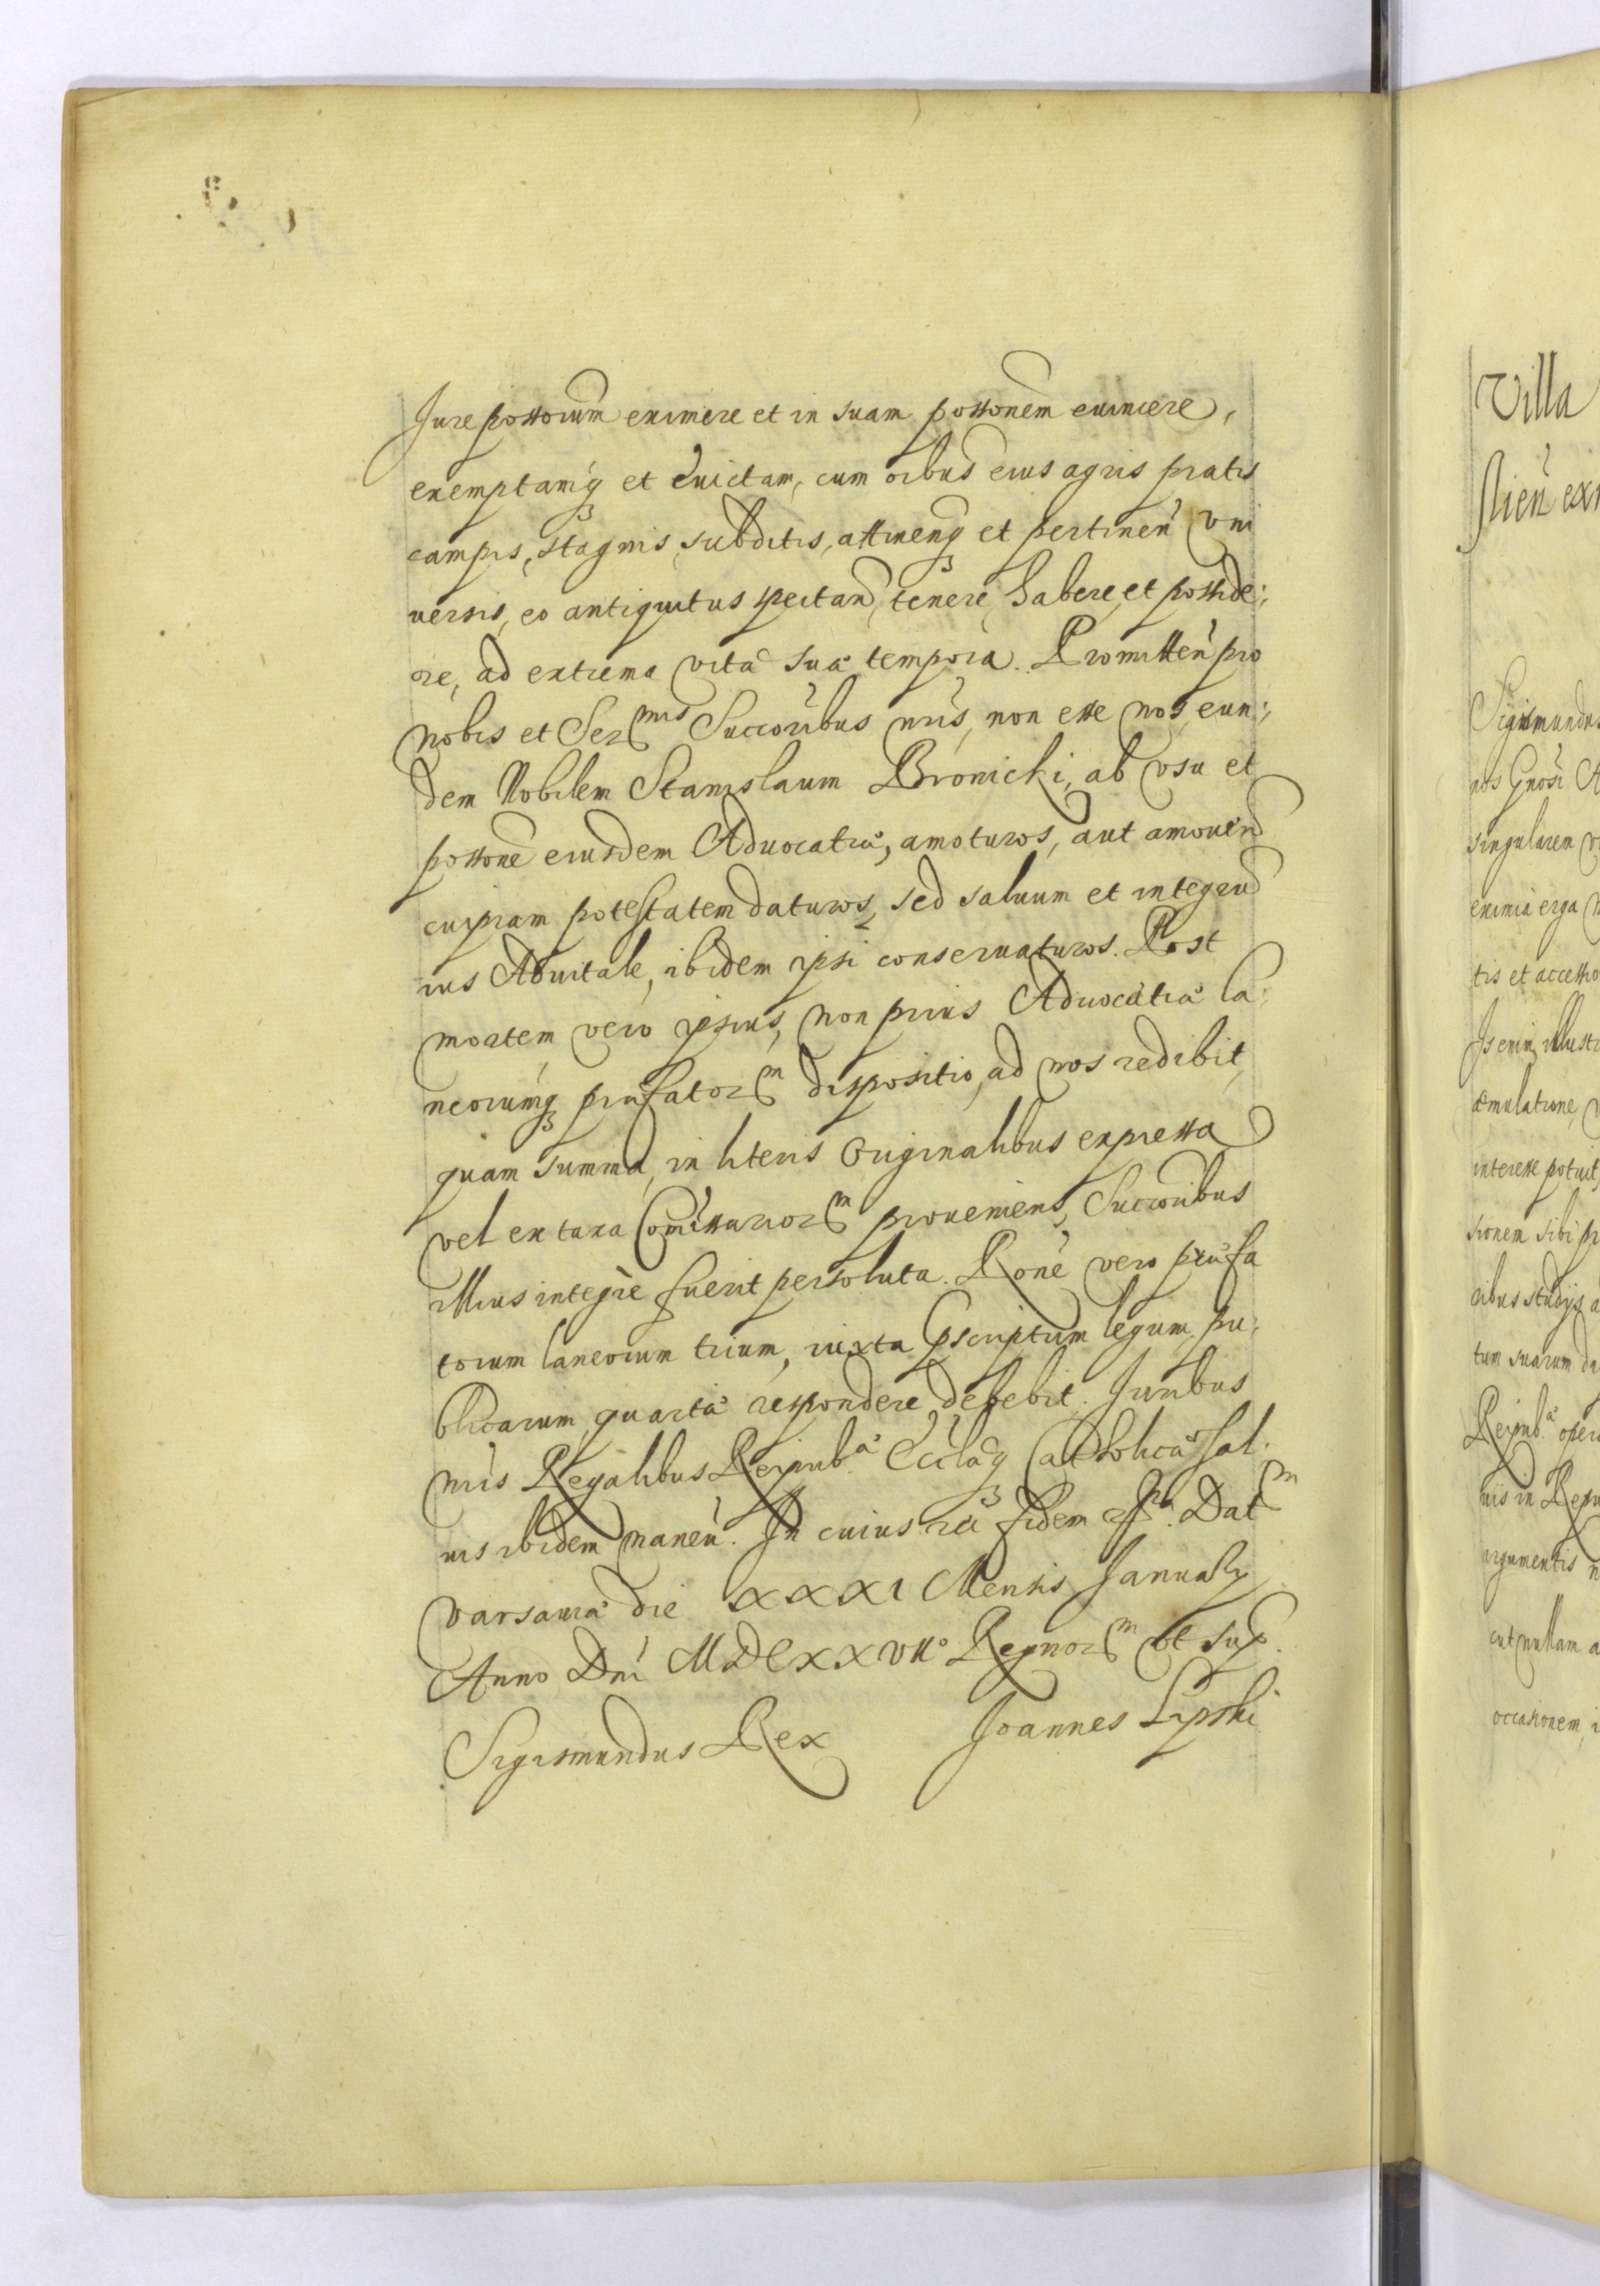 Jure possorum eximere et in suam possonem euincere,
exemptamq₃ et euictam, cum oibus eius agris pratis
campis, stagnis, subditis, attinenq₃ et pertinen vni
uersis, eo antiquitus spectan, tenere, habere, et posside:
re, ad extrema vitæ suæ tempora. Promitten pro
nobis et Ser^mis Succoribus nris, non esse nos, eun:
dem Nobilem Stanislaum Bronicki, ab vsu et
possone eiusdem Aduocatiæ, amoturos, aut amouen
cuipiam potestatem daturos, sed saluum et integrũ
ius Aduitale, ibidem ipsi conseruaturos. Post
mortem vero ipsius, non prius Aduocatiæ la:
neorumq₃ præfator^m dispositio, ad nos redibit,
quam summa, in literis Originalibus expressa
vel ex taxa Comissarior^m proueniens, Succoribus
illius integre fuerit persoluta. Rone vero præfa
torum laneorum trium, iuxta pscriptum legum pu:
blicarum, quartã respondere debebit. Juribus
nris Regalibus Reipub^æ Ecclæq₃ Catholicæ sal:
uis ibidem manen. In cuius rei fidem Dat^m
Varsauiæ die XXXI Mensis January
Anno Dni MDCXXVII° Regnor^m vt sup.
Sigismundus Rex Joannes Lipski
Villa
Sigismundus
nos Gnosi
singularem
eximia erga
tis et accessio
Is enim illustr
æmulatione,
interesse potuit,
sionem sibi pr
oibus studijs a
tum suarum da
Reipub^æ oper
uis in Repu
argumentis n
cut nullam a
occasionem, i